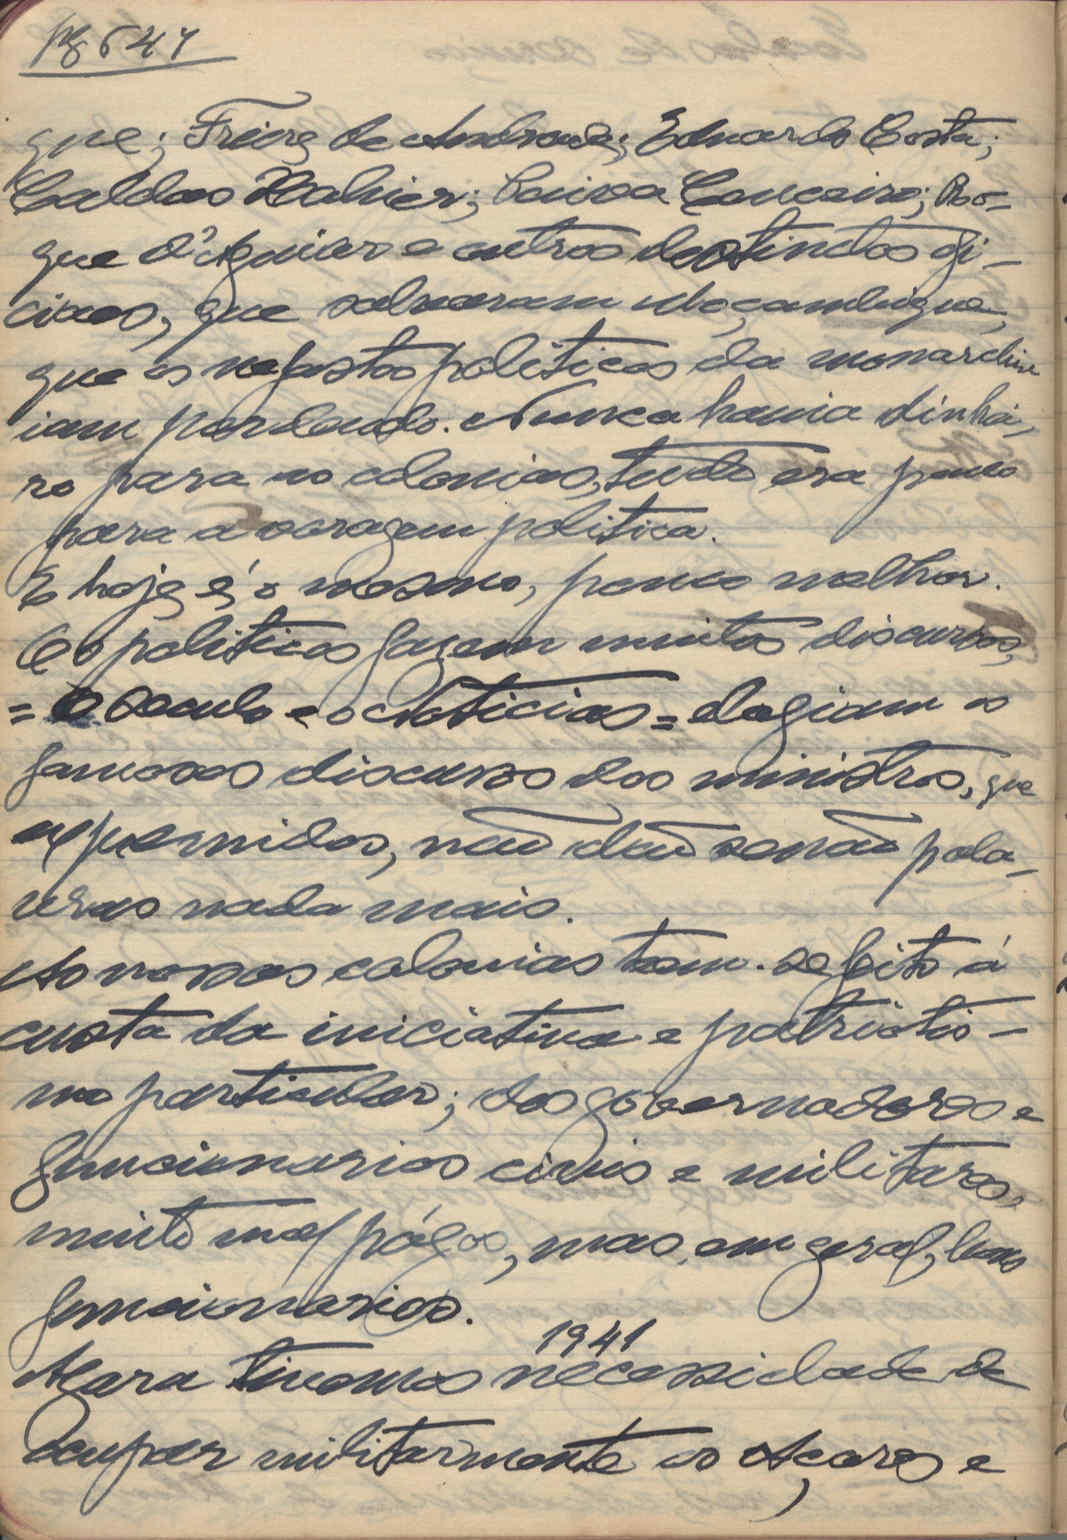 pg 647
que; Freire de Andrade; Eduardo Costa;
Caldas Xavier; Paiva Couceiro; Ro=
que d'Aguiar e outros destintos ofi-
ciaes, que salvaram Moçambique,
que os nefastos politicos da monarchia
iam perdendo. Nunca havia dinhei,
ro para as colonias, tudo era pouco
para a voragem politica.
E hoje é o mesmo, pouco melhor.
Os politicos fazem muitos discursos,
= O Seculo e o Noticias = elogiam os
famosos discursos dos ministros, que
espremidos, não dão senão pala-
vras nada mais.
As nossas colonias tem-se feito á
custa da iniciativa e patriotis-
mo particular; dos governadores e
funcionarios civis e militares,
muito mal págos, mas, em geral, bons
funcionarios.
1941
Agora tivemos necessidade de
ocupar militarmente os Açores e